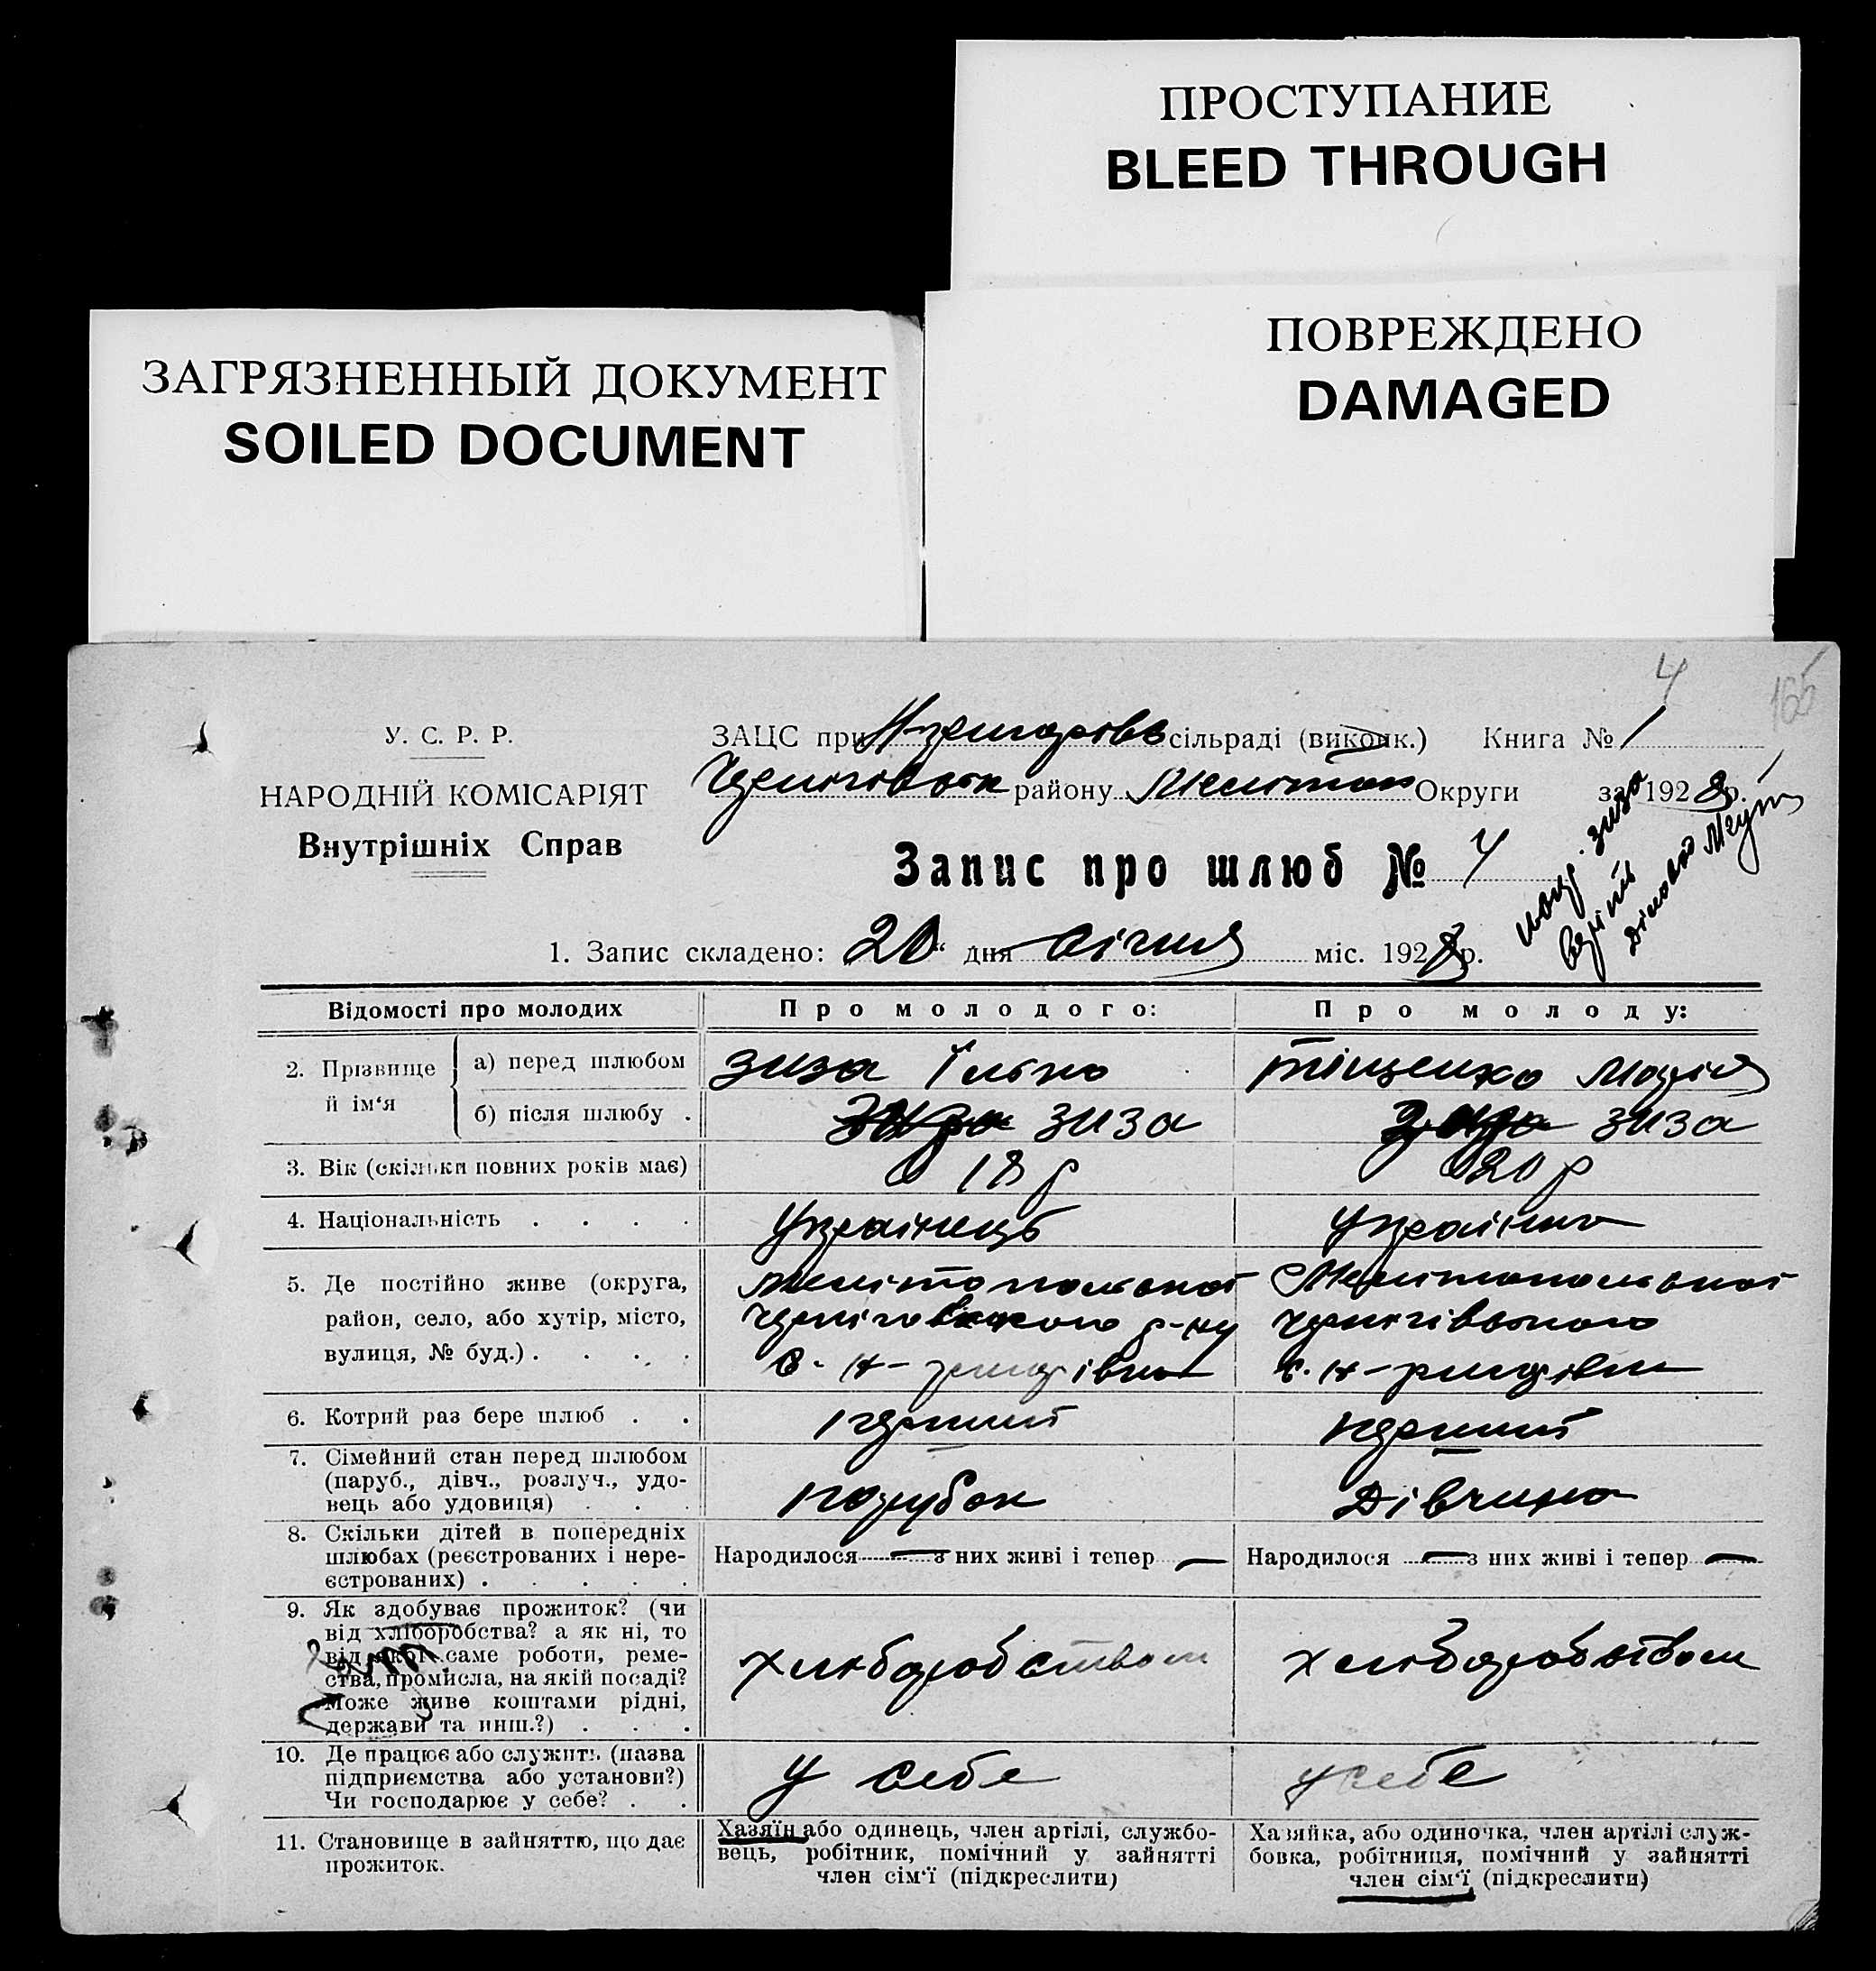 ПРОСТУПАНИЕ
BLEED THROUGH
ПОВРЕЖДЕНО
DAMAGED
ЗАГРЯЗНЕННЫЙ ДОКУМЕНТ
SOILED DOCUMENT
4
165
У. С. Р. Р.
НАРОДНІЙ КОМІСАРІЯТ
Внутрішніх Справ
ЗАЦС при сільраді (виконк.) Книга № 1
району Мелітоп Округи за 1928 р.
Запис про шлюб № 4
1. Запис складено: 20 “ дня січня міс. 1928 р.
Відомості про молодих
Про молодого:
Про молоду:
2. Прізвище й ім‘я
а) перед шлюбом
зиза Ілько
Тіщенко Марія
б) після шлюбу .
зиза
зиза
3. Вік (скільки повних років має)
18 р
20 р
4. Національність . . . .
Українець
Українка
5. Де постійно живе (округа,
район, село, або хутір, місто,
вулиця, № буд.) . . . .
Мелітопольської
Чернігівського р-ну
Мелітопольської
Чернігівського
6. Котрий раз бере шлюб . .
перший
перший
7. Сімейний стан перед шлюбом
(паруб., дівч., розлуч., удо-
вець або удовиця) . . .
парубок
Дівчина
8. Скільки дітей в попередніх
шлюбах (реєстрованих і нере-
єстрованих) . . . . .
Народилося — з них живі і тепер —
Народилося — з них живі і тепер —
9. Як здобуває прожиток? (чи
від хліборобства? а як ні, то
від якої саме роботи, реме-
ства, промисла, на якій посаді?
Може живе коштами рідні,
держави та инш.?) . . .
хліборобством
хліборобством
10. Де працює або служить (назва
підприємства або установи?)
Чи господарює у себе? . .
у себе
у себе
11. Становище в зайняттю, що дає
прожиток.
Хазяїн або одинець, член артілі, службо-
вець, робітник, помічний у зайнятті
член сім‘ї (підкреслити)
Хазяйка, або одиночка, член артілі служ-
бовка, робітниця, помічний у зайнятті
член сім‘ї (підкреслити)